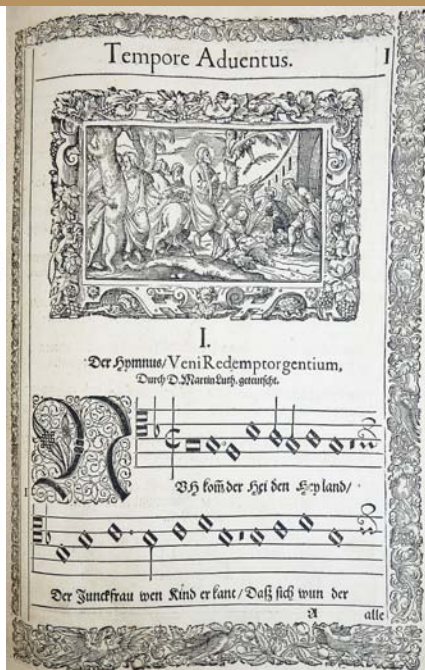 Tempore Aduentus. I
I.
Der Hymnus/ Veni Redemptor gentium,
Durch D. Martin Luth. geteutscht.
NVh kom̃ der Hei den Heyland/
I
Der Junckfrau wen Kind er kant/ Daß sich wun der
A alle